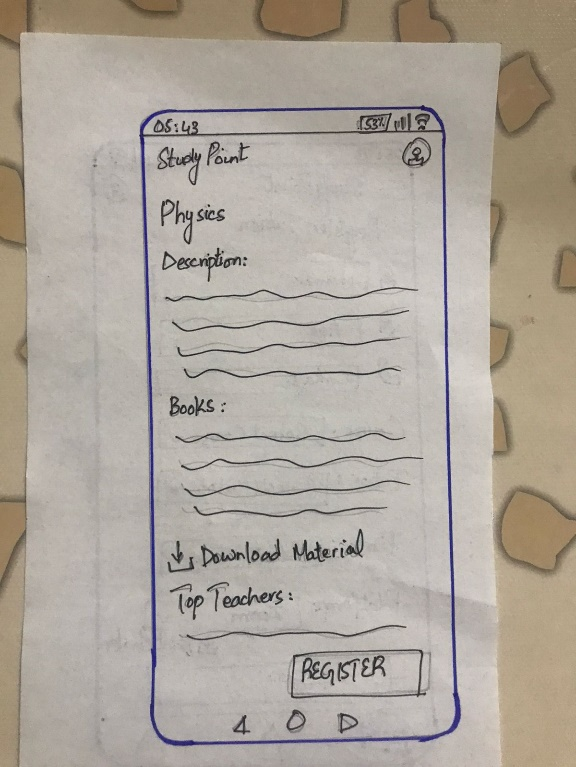 05:43 53%
Study Point
Physics
Description:
Books:
Download Material
Top Teachers:
REGISTER